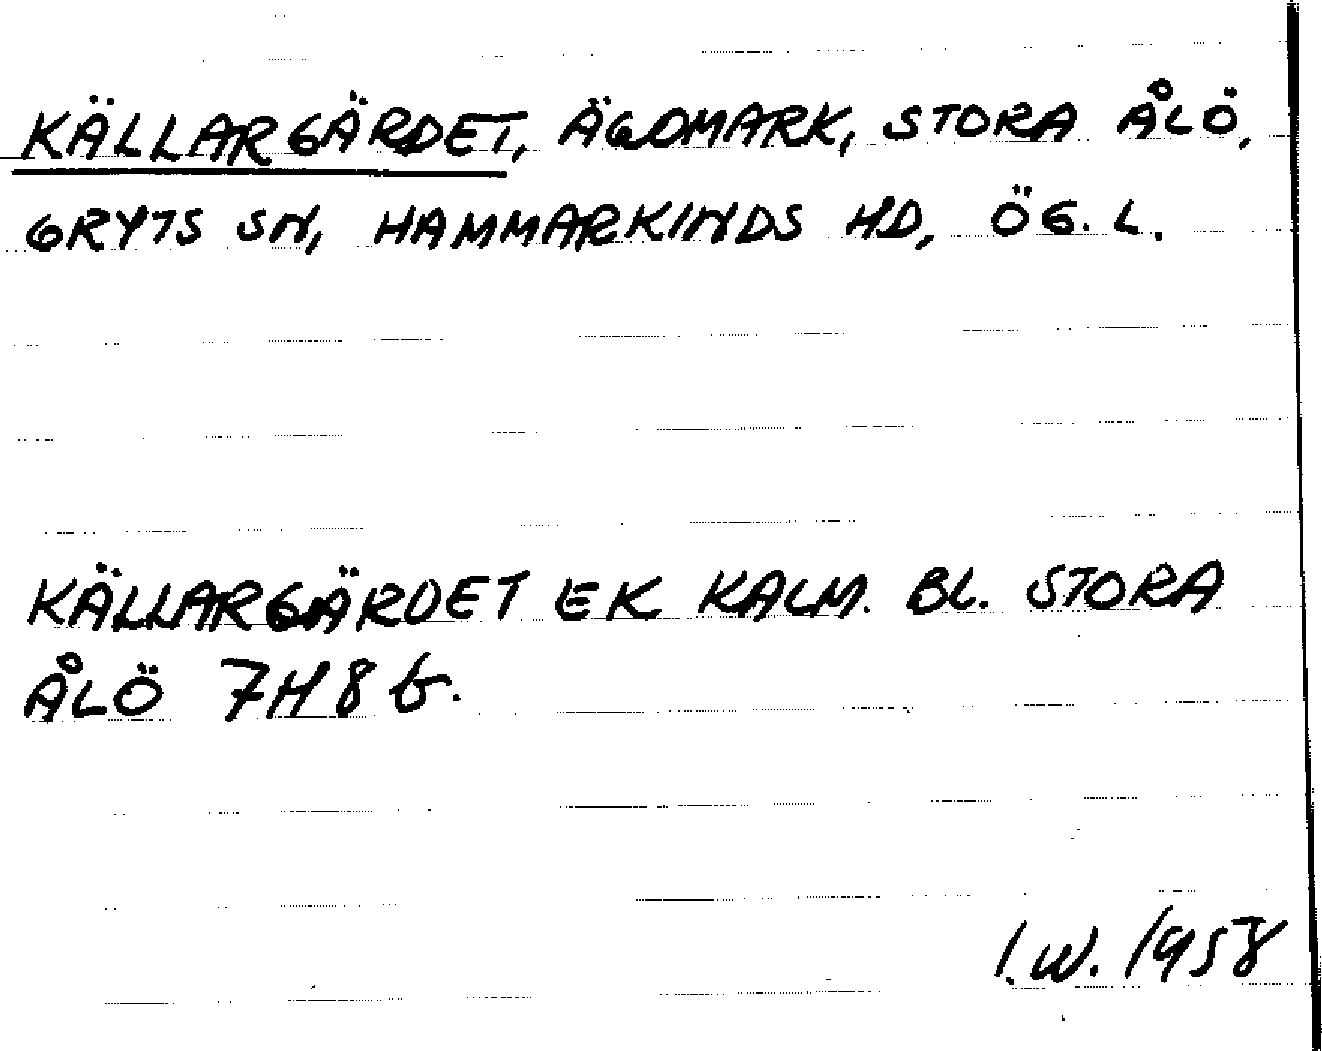 KÄLLARGÄRDET, ÄGOMARK, STORA ÅLÖ,
GRYTS SN, HAMMARKINDS HD, ÖG. L.
KÄLLARGÄRDET EK KALM. BL. STORA
ÅLÖ 7H8b.
I.W. 1958